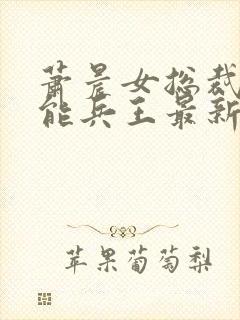 萧晨女总裁
能兵王最新
苹果葡萄梨